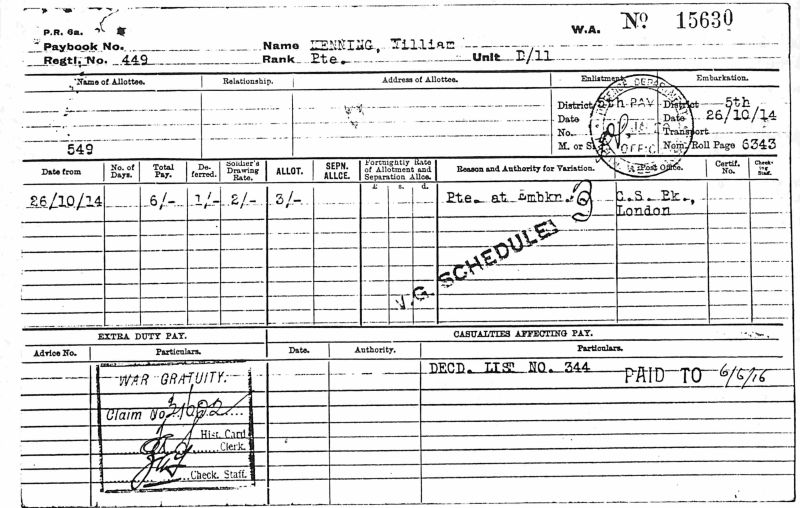 P.R. 6a.
W.A. No 15630
Paybook No. Name KENNING, William
Regtl. No. 449 Rank Pte. Unit D/11
Name of Allottee. Relationship. Address of Allottee. Enlistment. Embarkation.
District 5th PAY District 5th
Date Date 26/10/14
No. Transport
549 M. or S. OFFICE Nom. Roll Page 6343
Date from No. of Days. Total Pay. De-ferred. Soldier's Drawing Rate. ALLOT. SEPN. ALLCE. Fortnightly Rate of Allotment and Separation Allce. £ s. d. Reason and Authority for Variation. Post Office. Certif. No. Check-ing Staff.
26/10/14 6/- 1/- 2/- 3/- Pte. at Embkn. 3 C.S. Bk.,
London
W.G. SCHEDULE
EXTRA DUTY PAY. CASUALTIES AFFECTING PAY.
Advice No. Particulars. Date. Authority. Particulars.
DECD. LIST NO. 344 PAID TO 6/6/16
WAR GRATUITY.
Claim No.
Hist. Card
Clerk.
Check. Staff.